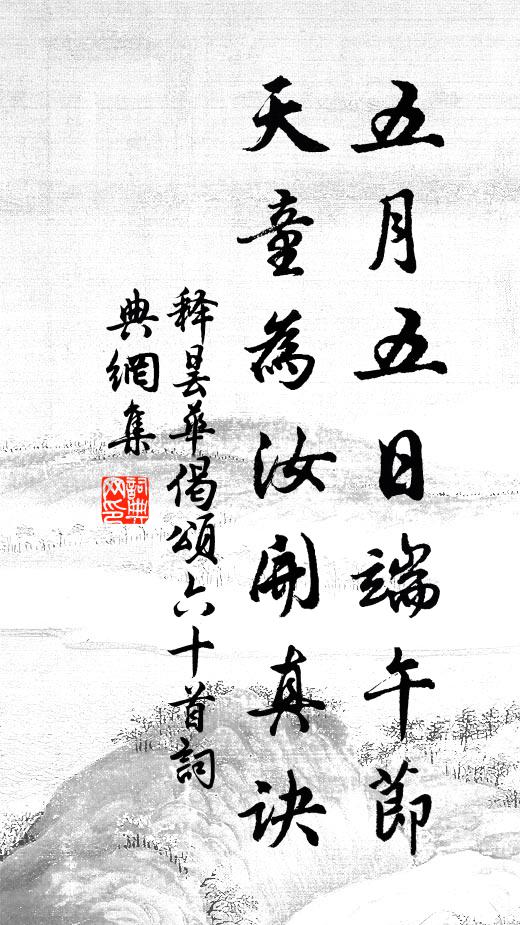 五月五日端午節
天童為汝開真訣
释曇華偈頌六十首詞
典網集
詞典
网印